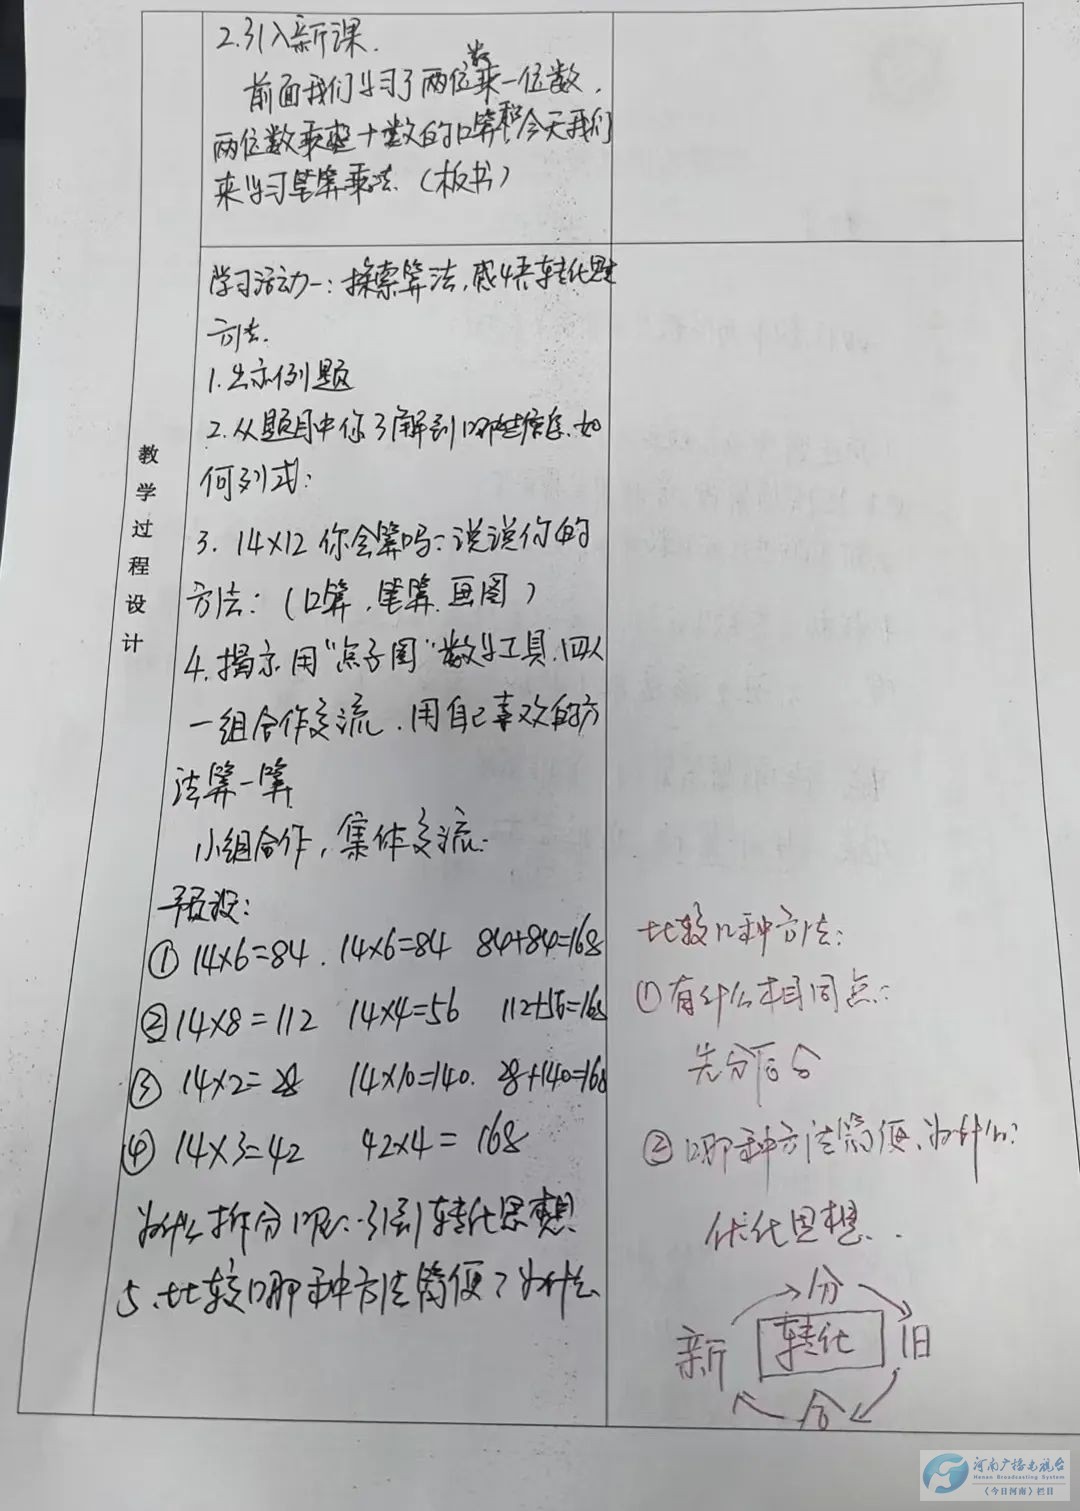 2.引入新课.
前面我们学习了两位数乘一位数,
两位数乘整十数的口算和今天我们
来学习笔算乘法.(板书)
学习活动一:探索算法,感悟转化思
方法.
1.出示例题
2.从题目中你了解到哪些信息.如
何列式:
3. 14×12 你会算吗:说说你的
方法:(口算.笔算.画图)
4.揭示用"点子图"数学工具.四人
一组合作交流.用自己喜欢的方
法算一算
小组合作,集体交流:
预设:
① 14×6=84. 14×6=84 84+84=168
② 14×8=112 14×4=56 112+56=168
③ 14×2=28 14×10=140. 28+140=168
④ 14×3=42 42×4=168
为什么拆分呢:引到转化思想.
5.比较哪种方法简便?为什么
教学过程设计
比较几种方法:
①有什么相同点:
先分后合
②哪种方法简便.为什么:
优化思想..
分
新 转化 旧
合
河南广播电视台
Henan Broadcasting System
《今日河南》栏目